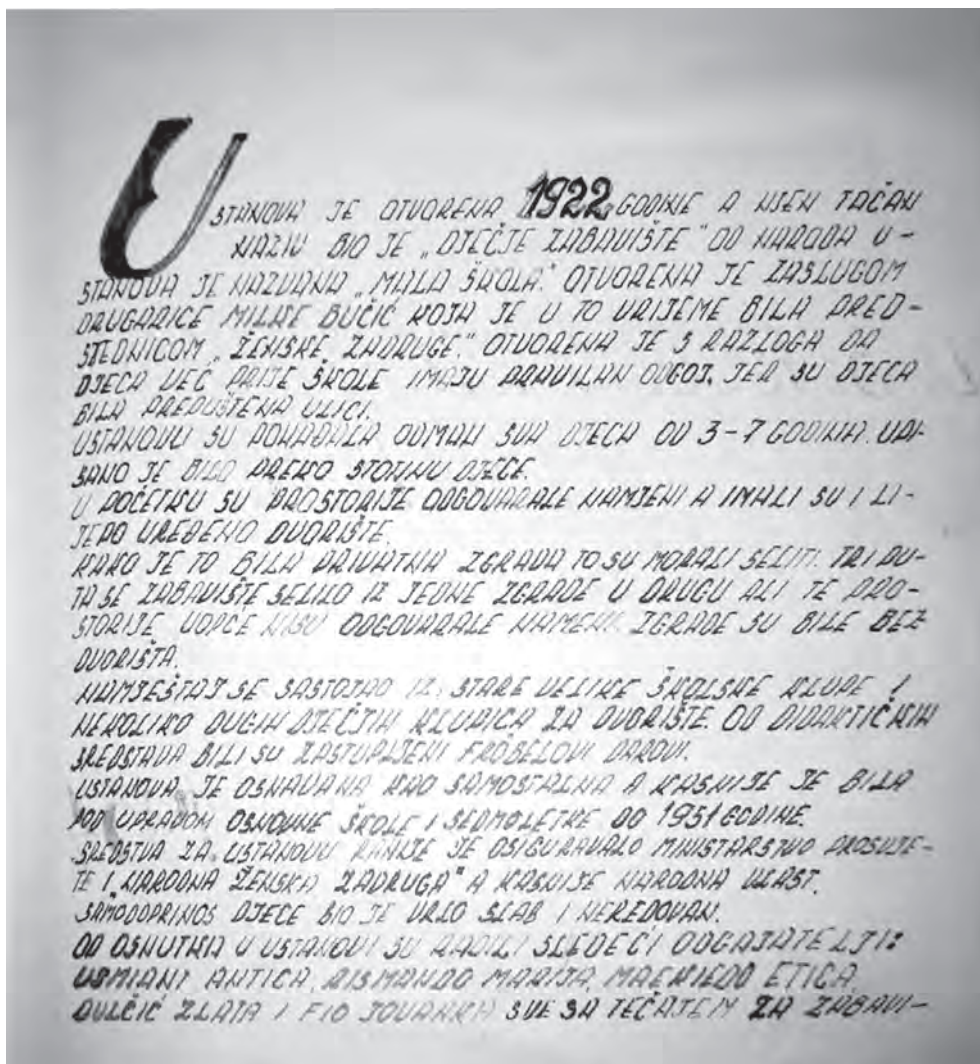 USTANOVA JE OTVORENA 1922 GODINE A NJEN TAČAN
NAZIV BIO JE „DJEČJE ZABAVIŠTE" OD NARODA U-
STANOVA JE NAZVANA „MALA ŠKOLA." OTVORENA JE ZASLUGOM
DRUGARICE MILKE BUČIĆ KOJA JE U TO VRIJEME BILA PRED-
SJEDNICOM „ŽENSKE ZADRUGE." OTVORENA JE S RAZLOGA DA
DJECA VEĆ PRIJE ŠKOLE IMAJU PRAVILAN ODGOJ, JER SU DJECA
BILA PREPUŠTENA ULICI.
USTANOVU SU POHAĐALA ODMALI SVA DJECA OD 3-7 GODINA. UPI-
SANO JE BILO PREKO STOTINU DJECE.
U POČETKU SU PROSTORIJE ODGOVARALE NAMJENI A IMALI SU I LI-
JEPO UREĐENO DVORIŠTE.
KAKO JE TO BILA PRIVATNA ZGRADA TO SU MORALI SELITI. TRI PU-
TA SE ZABAVIŠTE SELILO IZ JEDNE ZGRADE U DRUGU ALI TE PRO-
STORIJE UOPĆE NISU ODGOVARALE NAMENI. ZGRADE SU BILE BEZ
DVORIŠTA.
NAMJEŠTAJ SE SASTOJAO IZ STARE VELIKE ŠKOLSKE KLUPE I
NEKOLIKO DUGIH DJEČJIH KLUPICA ZA DVORIŠTE. OD DIDAKTIČKIH
SREDSTAVA BILI SU ZASTUPLJENI FRÖBELOVI DAROVI.
USTANOVA JE OSNOVANA KAO SAMOSTALNA A KASNIJE JE BILA
POD UPRAVOM OSNOVNE ŠKOLE I SEDMOLETKE DO 1951 GODINE.
SREDSTVA ZA USTANOVU RANIJE JE OSIGURAVALO MINISTARSTVO PROSVJE-
TE I „NARODNA ŽENSKA ZADRUGA" A KASNIJE NARODNA VLAST.
SAMODOPRINOS DJECE BIO JE VRLO SLAB I NEREDOVAN.
OD OSNUTKA U USTANOVI SU RADILI SLEDEĆI ODGAJATELJI:
USMIANI ANTICA, RISMONDO MARIJA, MACHIEDO ETICA,
DULČIĆ ZLATA I FIO JOVANKA SVE SA TEČAJEM ZA ZABAVI-